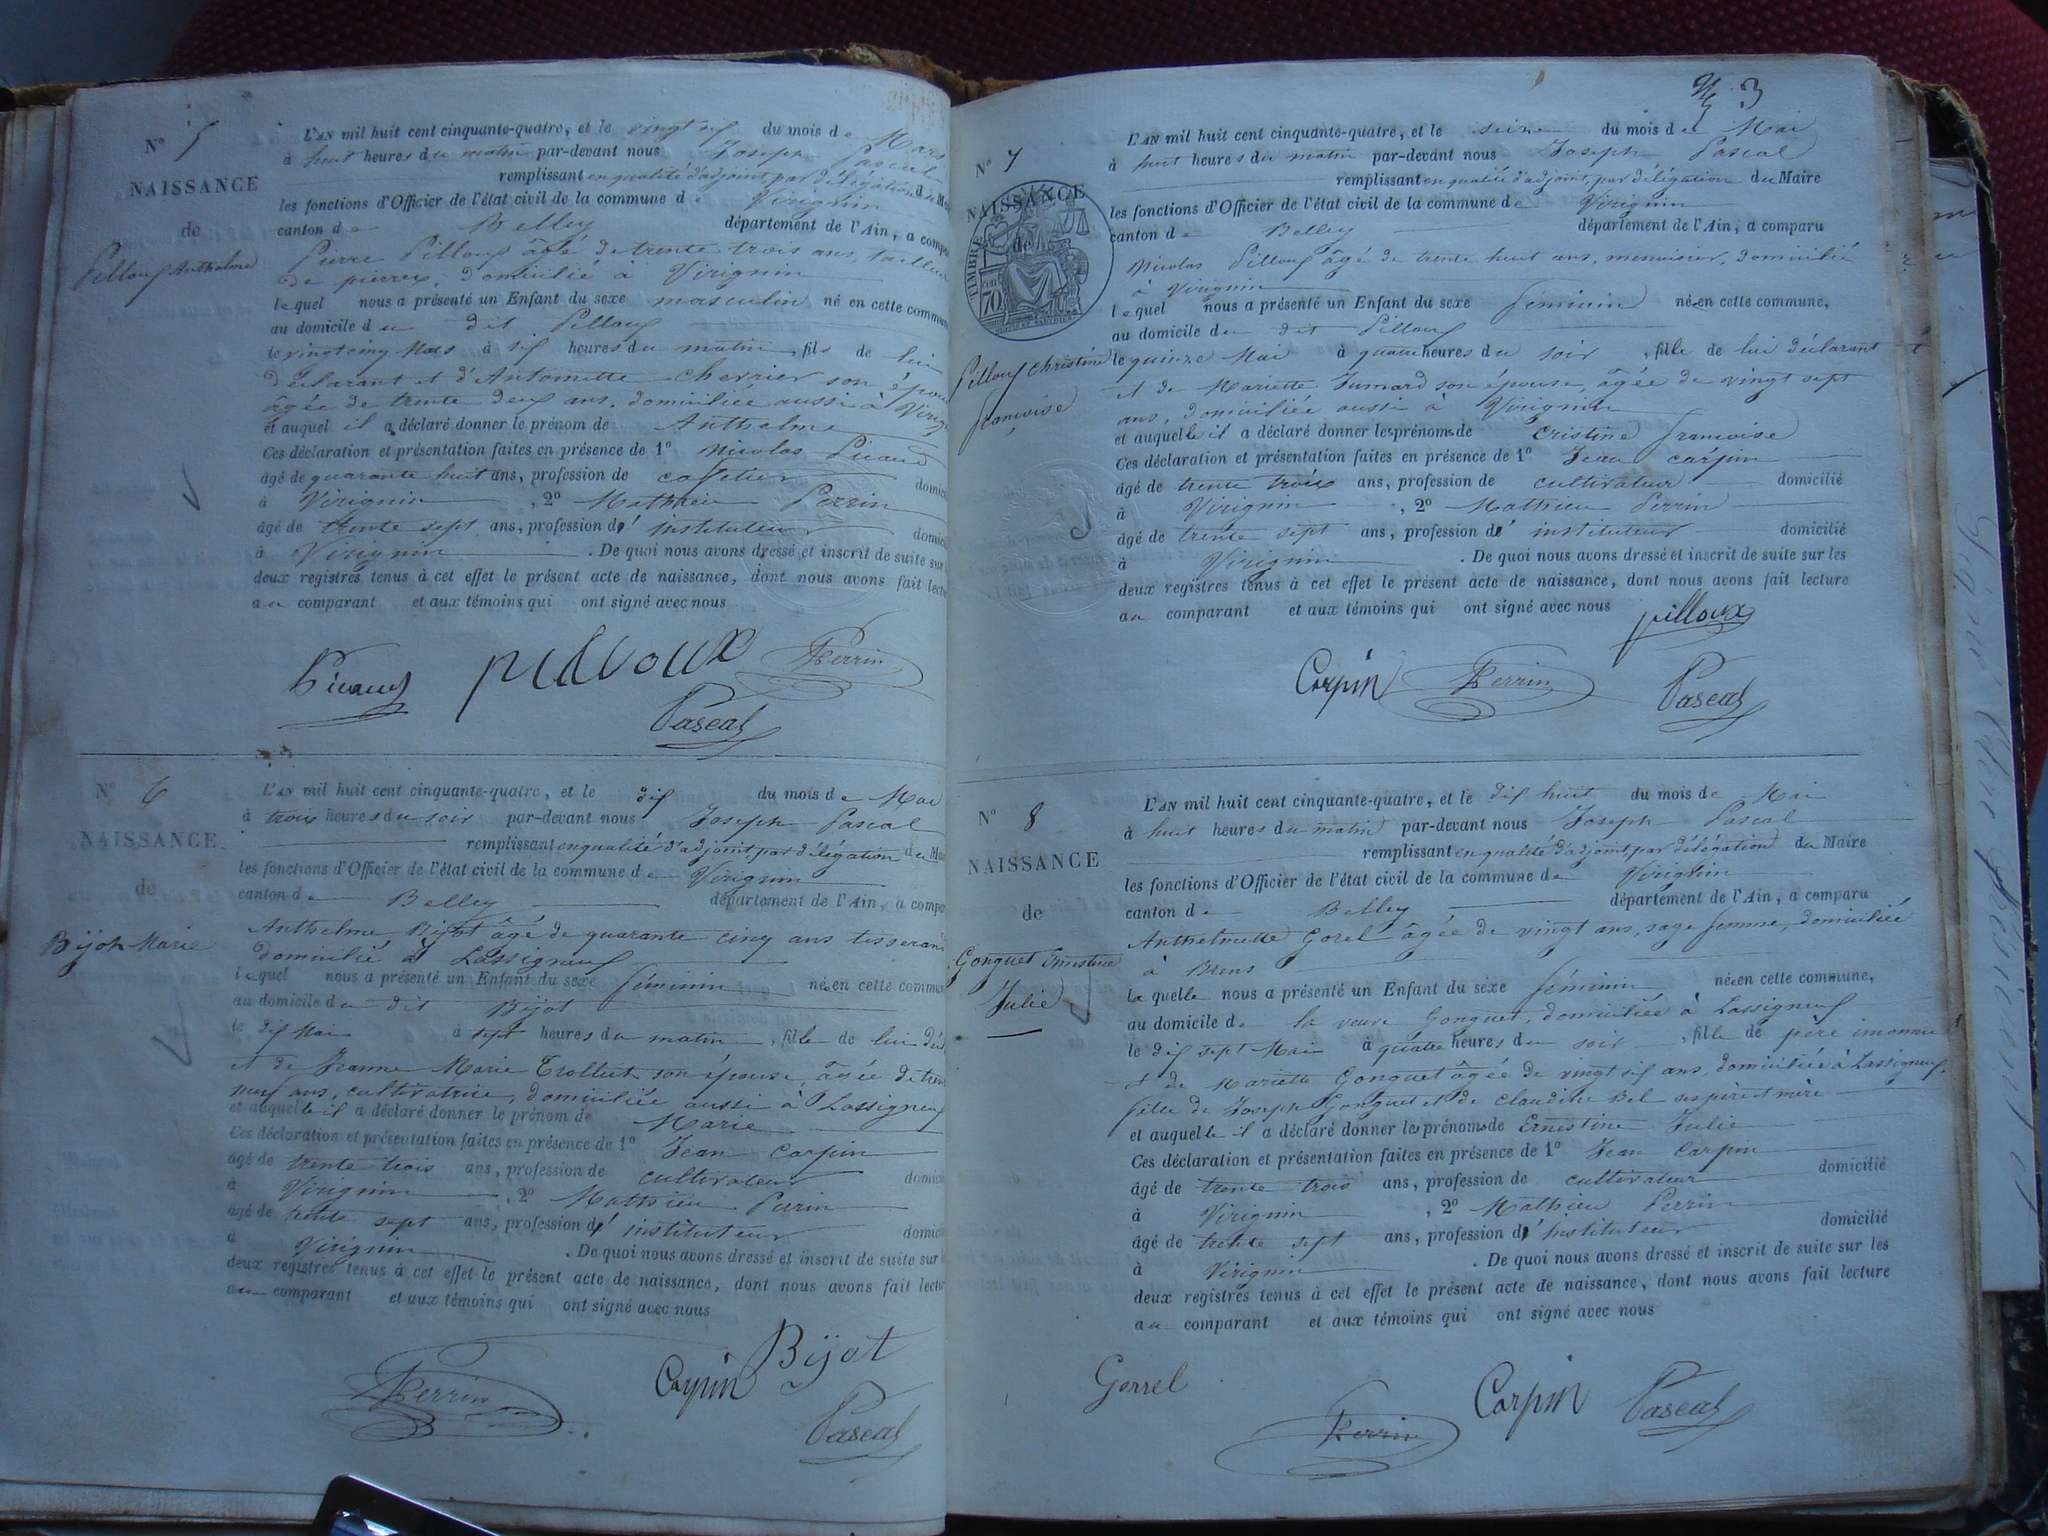 N° 5
NAISSANCE
de
Pilloux Anthelme
L'AN mil huit cent cinquante-quatre, et le vingt six du mois de Mars
à huit heures du matin par-devant nous Joseph Pascal
remplissant en qualité d'adjoint, par délégation du M
les fonctions d'Officier de l'état civil de la commune de Virignin
canton de Belley département de l'Ain, a compa
Pierre Pilloux âgé de trente trois ans, tailleur
de pierres, domicilié à Virignin
lequel nous a présenté un Enfant du sexe masculin né en cette commun
au domicile du dit Pilloux
le vingt cinq Mars à six heures du matin, fils de lui
déclarant et d'Antoinette Cherrier son épous
âgée de trente deux ans, domiciliée aussi à Virig
et auquel il a déclaré donner le prénom de Anthelme
Ces déclaration et présentation faites en présence de 1° Nicolas Picaud
âgé de quarante huit ans, profession de cafetier domici
à Virignin, 2° Mathieu Perrin
âgé de trente sept ans, profession d' instituteur domici
à Virignin. De quoi nous avons dressé et inscrit de suite sur
deux registres tenus à cet effet le présent acte de naissance, dont nous avons fait lectu
au comparant et aux témoins qui ont signé avec nous
Picaud pilloux Perrin
Pascal
N° 6
NAISSANCE
de
Bijot Marie
L'AN mil huit cent cinquante-quatre, et le dix du mois de Mai
à trois heures du soir par-devant nous Joseph Pascal
remplissant en qualité d'adjoint, par délégation du M
les fonctions d'Officier de l'état civil de la commune de Virignin
canton de Belley département de l'Ain, a compa
Anthelme Bijot âgé de quarante cinq ans tisseran
domicilié à Lassigneux
lequel nous a présenté un Enfant du sexe féminin née en cette commun
au domicile du dit Bijot
le dix Mai à sept heures du matin, fille de lui décl
et de Jeanne Marie Trollut son épouse, âgée de tren
neuf ans, cultivatrice, domiciliée aussi à Lassigneux
et auquelle il a déclaré donner le prénom de Marie
Ces déclaration et présentation faites en présence de 1° Jean Carpin
âgé de trente trois ans, profession de cultivateur domici
à Virignin, 2° Mathieu Perrin
âgé de trente sept ans, profession d' instituteur domici
à Virignin. De quoi nous avons dressé et inscrit de suite sur
deux registres tenus à cet effet le présent acte de naissance, dont nous avons fait lectu
au comparant et aux témoins qui ont signé avec nous
Perrin Carpin Bijot
Pascal
3
N° 7
NAISSANCE
de
TIMBRE
70
Pilloux Christine
françoise
L'AN mil huit cent cinquante-quatre, et le seize du mois de Mai
à huit heures du matin par-devant nous Joseph Pascal
remplissant en qualité d'adjoint, par délégation du Maire
les fonctions d'Officier de l'état civil de la commune de Virignin
canton de Belley département de l'Ain, a comparu
Nicolas Pilloux âgé de trente huit ans, menuisier, domicilié
à Virignin
lequel nous a présenté un Enfant du sexe féminin née en cette commune,
au domicile du dit Pilloux
le quinze Mai à quatre heures du soir, fille de lui déclarant
et de Mariette Jumard son épouse, âgée de vingt sept
ans, domiciliée aussi à Virignin
et auquelle il a déclaré donner les prénoms de Cristine françoise
Ces déclaration et présentation faites en présence de 1° Jean Carpin
âgé de trente trois ans, profession de cultivateur domicilié
à Virignin, 2° Mathieu Perrin
âgé de trente sept ans, profession d' instituteur domicilié
à Virignin. De quoi nous avons dressé et inscrit de suite sur les
deux registres tenus à cet effet le présent acte de naissance, dont nous avons fait lecture
au comparant et aux témoins qui ont signé avec nous
pilloux
Carpin Perrin Pascal
N° 8
NAISSANCE
de
Gonguet Ernestine
Julie
L'AN mil huit cent cinquante-quatre, et le dix huit du mois de Mai
à huit heures du matin par-devant nous Joseph Pascal
remplissant en qualité d'adjoint, par délégation du Maire
les fonctions d'Officier de l'état civil de la commune de Virignin
canton de Belley département de l'Ain, a comparu
Anthelmette Gorel âgée de vingt ans, sage femme, domiciliée
à Brens
laquelle nous a présenté un Enfant du sexe féminin née en cette commune,
au domicile de la veuve Gonguet, domiciliée à Lassigneux
le dix sept Mai à quatre heures du soir, fille de père inconnu
et de Mariette Gonguet âgée de vingt six ans, domiciliée à Lassigneux,
fille de Joseph Gonguet et de Claudine Bel ses père et mère
et auquelle il a déclaré donner les prénoms de Ernestine Julie
Ces déclaration et présentation faites en présence de 1° Jean Carpin
âgé de trente trois ans, profession de cultivateur domicilié
à Virignin, 2° Mathieu Perrin
âgé de trente sept ans, profession d' instituteur domicilié
à Virignin. De quoi nous avons dressé et inscrit de suite sur les
deux registres tenus à cet effet le présent acte de naissance, dont nous avons fait lecture
au comparant et aux témoins qui ont signé avec nous
Gorrel Perrin Carpin Pascal